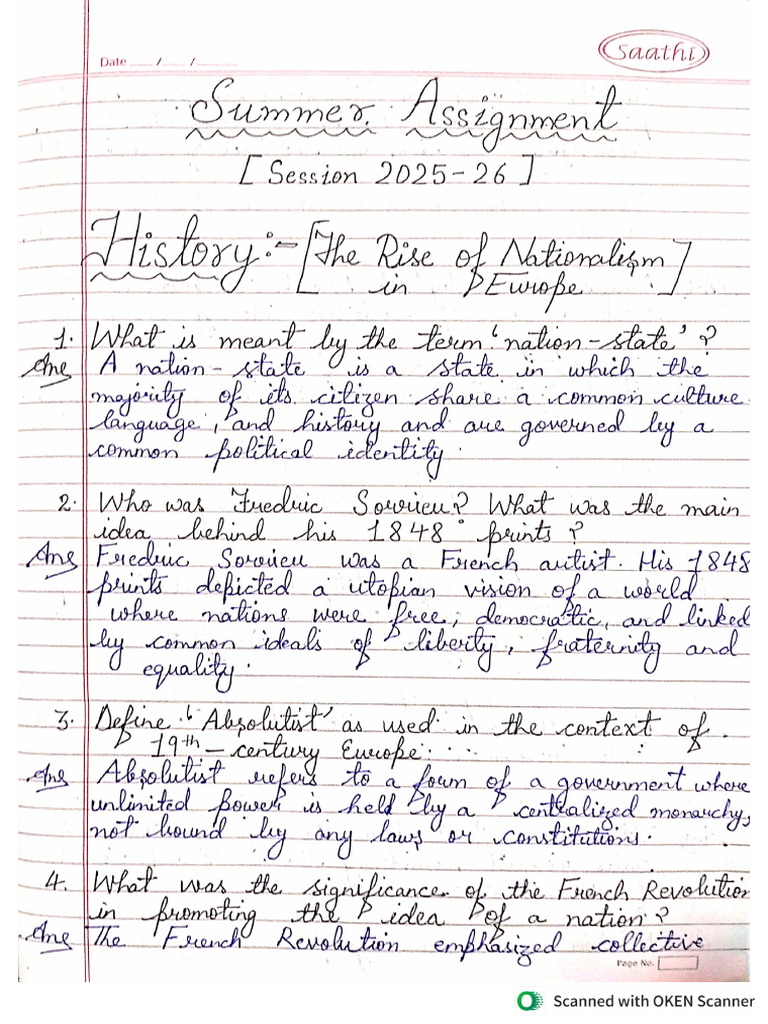 Saathi
Date ___/___/___
Summer Assignment
[ Session 2025-26 ]
History:- [The Rise of Nationalism
in Europe]
1. What is meant by the term 'nation-state'?
Ans A nation-state is a state in which the
majority of its citizen share a common culture
language, and history and are governed by a
common political identity.
2. Who was Fredric Sorrieu? What was the main
idea behind his 1848 prints?
Ans Fredric Sorrieu was a French artist. His 1848
prints depicted a utopian vision of a world
where nations were free, democratic, and linked
by common ideals of liberty, fraternity and
equality.
3. Define 'Absolutist' as used in the context of
19th-century Europe.
Ans Absolutist refers to a form of a government where
unlimited power is held by a centralized monarchy,
not bound by any laws or constitutions.
4. What was the significance of the French Revolution
in promoting the idea of a nation?
Ans The French Revolution emphasized collective
Page No.
Scanned with OKEN Scanner